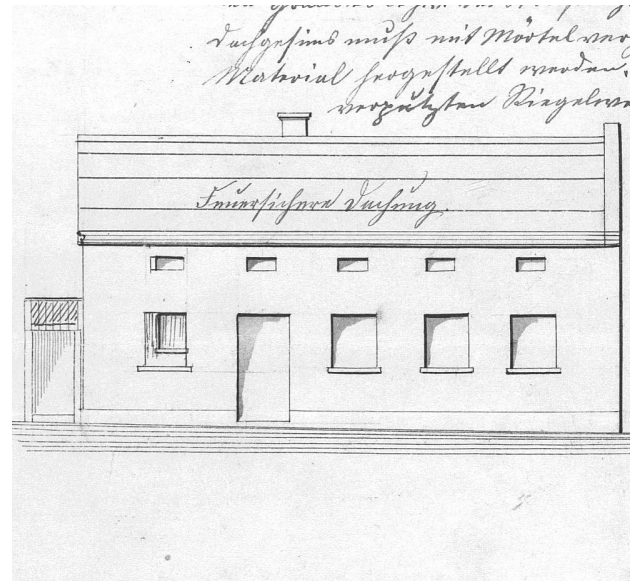 Dachgesims muß mit Mörtel ver
Material hergestellt werden.
verputzten Riegelwe
Feuersichere Dachung.